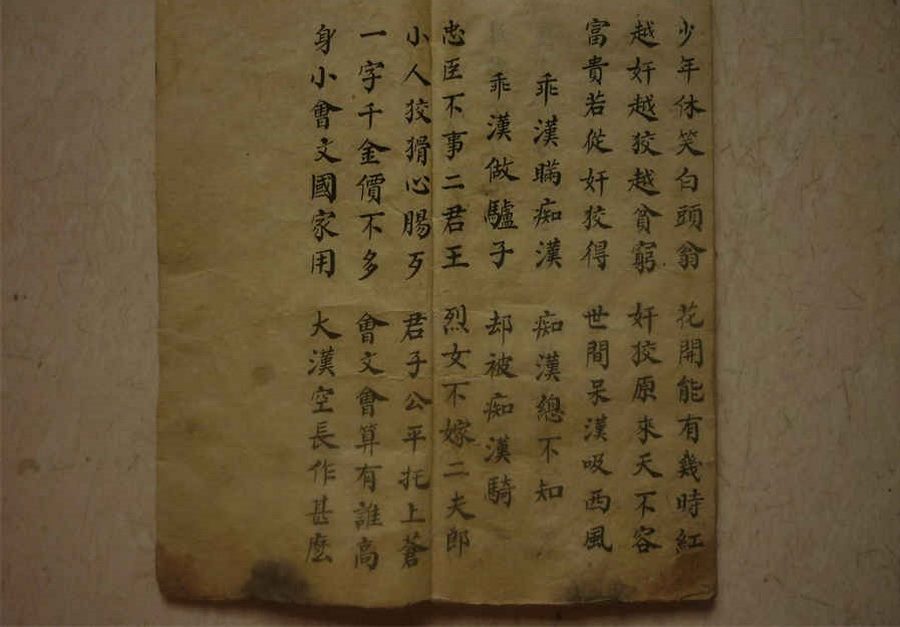 少年休笑白頭翁 花開能有幾時紅
越奸越狡越貧窮 奸狡原來天不容
富貴若從奸狡得 世間呆漢吸西風
乖漢瞞痴漢 痴漢總不知
乖漢做驢子 却被痴漢騎
忠臣不事二君王 烈女不嫁二夫郎
小人狡猾心腸歹 君子公平托上蒼
一字千金價不多 會文會算有誰高
身小會文國家用 大漢空長作甚麽